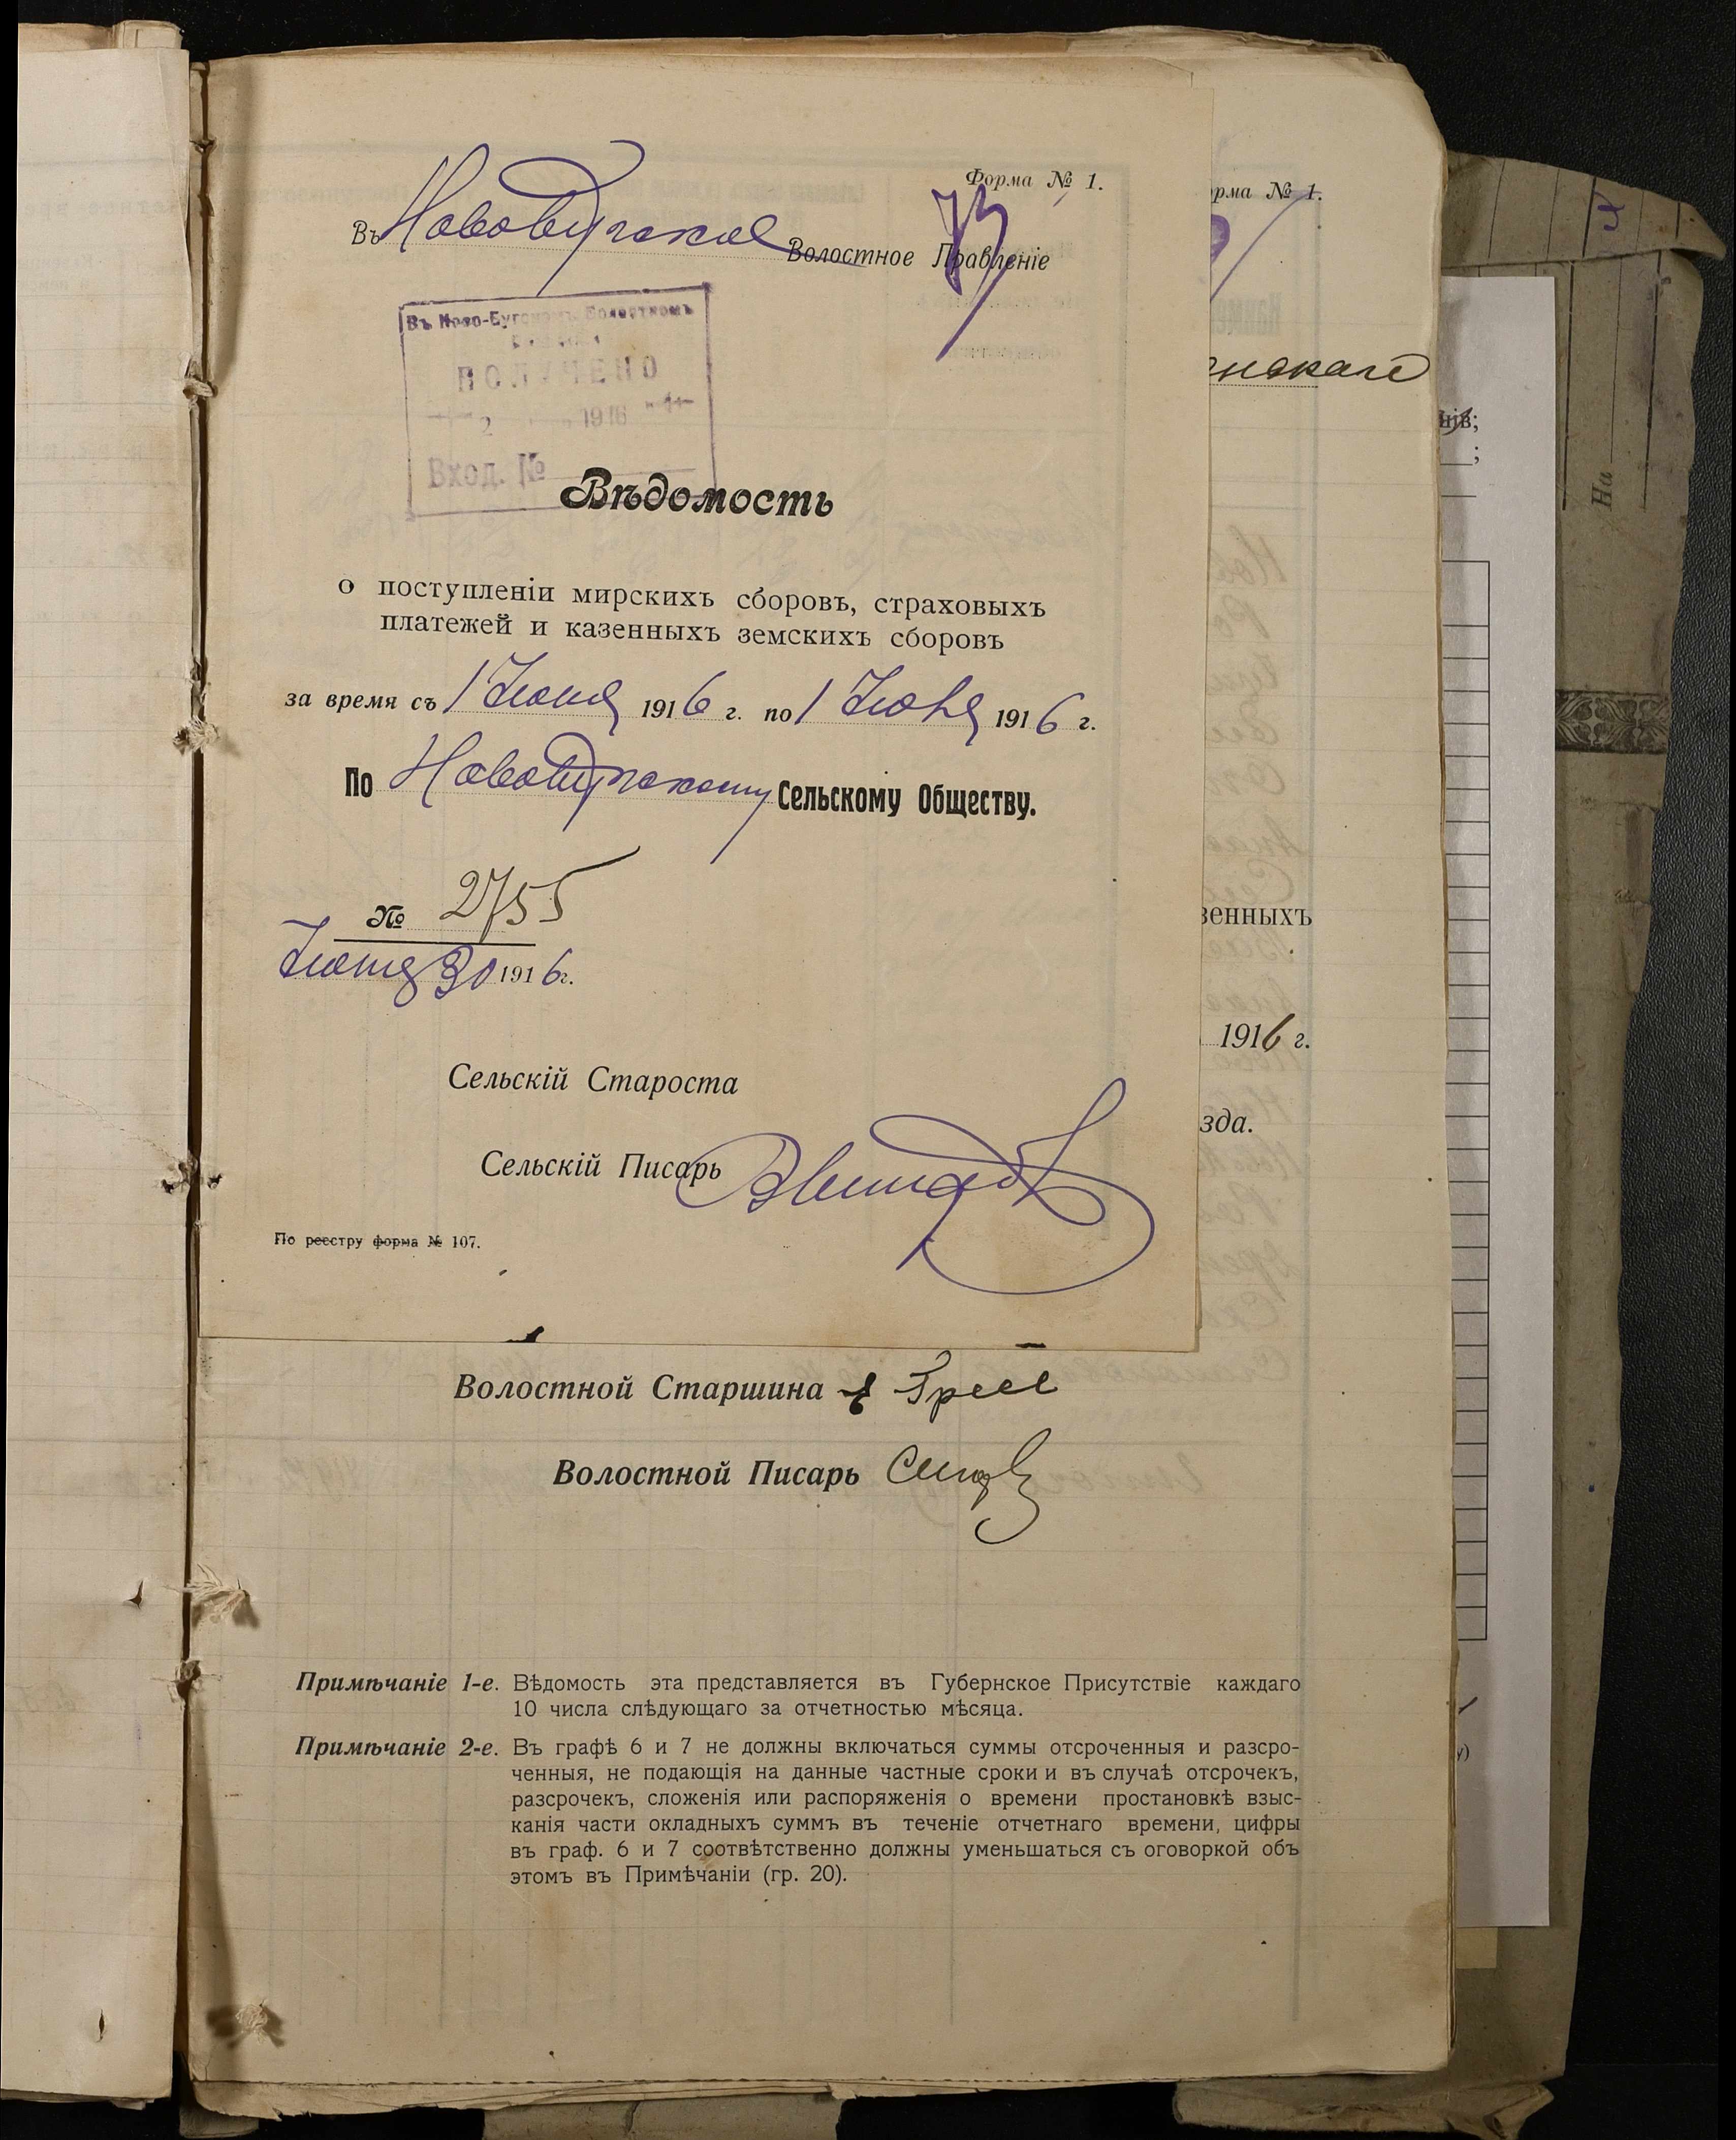 Форма № 1.
Въ Новобугское Волостное Правленіе
Въ Ново-Бугскомъ Волостномъ
ПОЛУЧЕНО
2 1916
Вход. №
Вѣдомость
о поступленіи мирскихъ сборовъ, страховыхъ
платежей и казенныхъ земскихъ сборовъ
за время съ 1 Іюня 1916 г. по 1 Іюля 1916 г.
По Новобугскому Сельскому Обществу.
№ 2755
Іюня 30 1916 г.
Сельскій Староста
Сельскій Писарь
По реестру форма № 107.
рма № 1.
нскаго
ніе;
;
зенныхъ
1916 г.
зда.
На
Волостной Старшина
Волостной Писарь
Примѣчаніе 1-е. Вѣдомость эта представляется въ Губернское Присутствіе каждаго
10 числа слѣдующаго за отчетностью мѣсяца.
Примѣчаніе 2-е. Въ графѣ 6 и 7 не должны включаться суммы отсроченныя и разсро-
ченныя, не подающія на данные частные сроки и въ случаѣ отсрочекъ,
разсрочекъ, сложенія или распоряженія о времени простановкѣ взыс-
канія части окладныхъ суммъ въ теченіе отчетнаго времени, цифры
въ граф. 6 и 7 соотвѣтственно должны уменьшаться съ оговоркой объ
этомъ въ Примѣчаніи (гр. 20).